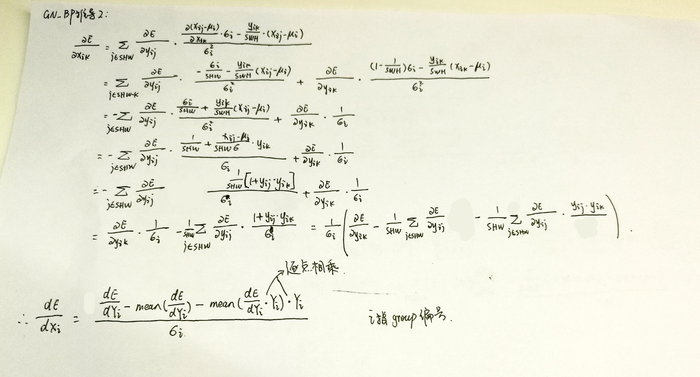 GN_BP 推导2:
∂E/∂x_ik = Σ_{j∈SHW} ∂E/∂y_ij · (∂(x_ij-μ_i)/∂x_ik · σ_i - y_ik/SWH · (x_ij-μ_i)) / σ_i²
= Σ_{j∈SHW-k} ∂E/∂y_ij · (-σ_i/SHW - y_ik/SWH (x_ij-μ_i)) / σ_i² + ∂E/∂y_ik · ((1-1/SWH)σ_i - y_ik/SWH (x_ik-μ_i)) / σ_i²
= -Σ_{j∈SHW} ∂E/∂y_ij · (σ_i/SHW + y_ik/SWH (x_ij-μ_i)) / σ_i² + ∂E/∂y_ik · 1/σ_i
= -Σ_{j∈SHW} ∂E/∂y_ij · (1/SHW + (x_ij-μ_i)/(SHW σ) · y_ik) / σ_i + ∂E/∂y_ik · 1/σ_i
= -Σ_{j∈SHW} ∂E/∂y_ij · 1/SHW [1+y_ij·y_ik] / σ_i + ∂E/∂y_ik · 1/σ_i
= ∂E/∂y_ik · 1/σ_i - 1/SHW Σ_{j∈SHW} ∂E/∂y_ij · (1+y_ij·y_ik)/σ_i = 1/σ_i (∂E/∂y_ik - 1/SHW Σ_{j∈SHW} ∂E/∂y_ij - 1/SHW Σ_{j∈SHW} ∂E/∂y_ij · y_ij·y_ik).
逐点相乘.
∴ dE/dx_i = (dE/dY_i - mean(dE/dY_i) - mean(dE/dY_i · Y_i) · Y_i) / σ_i
i指group编号.